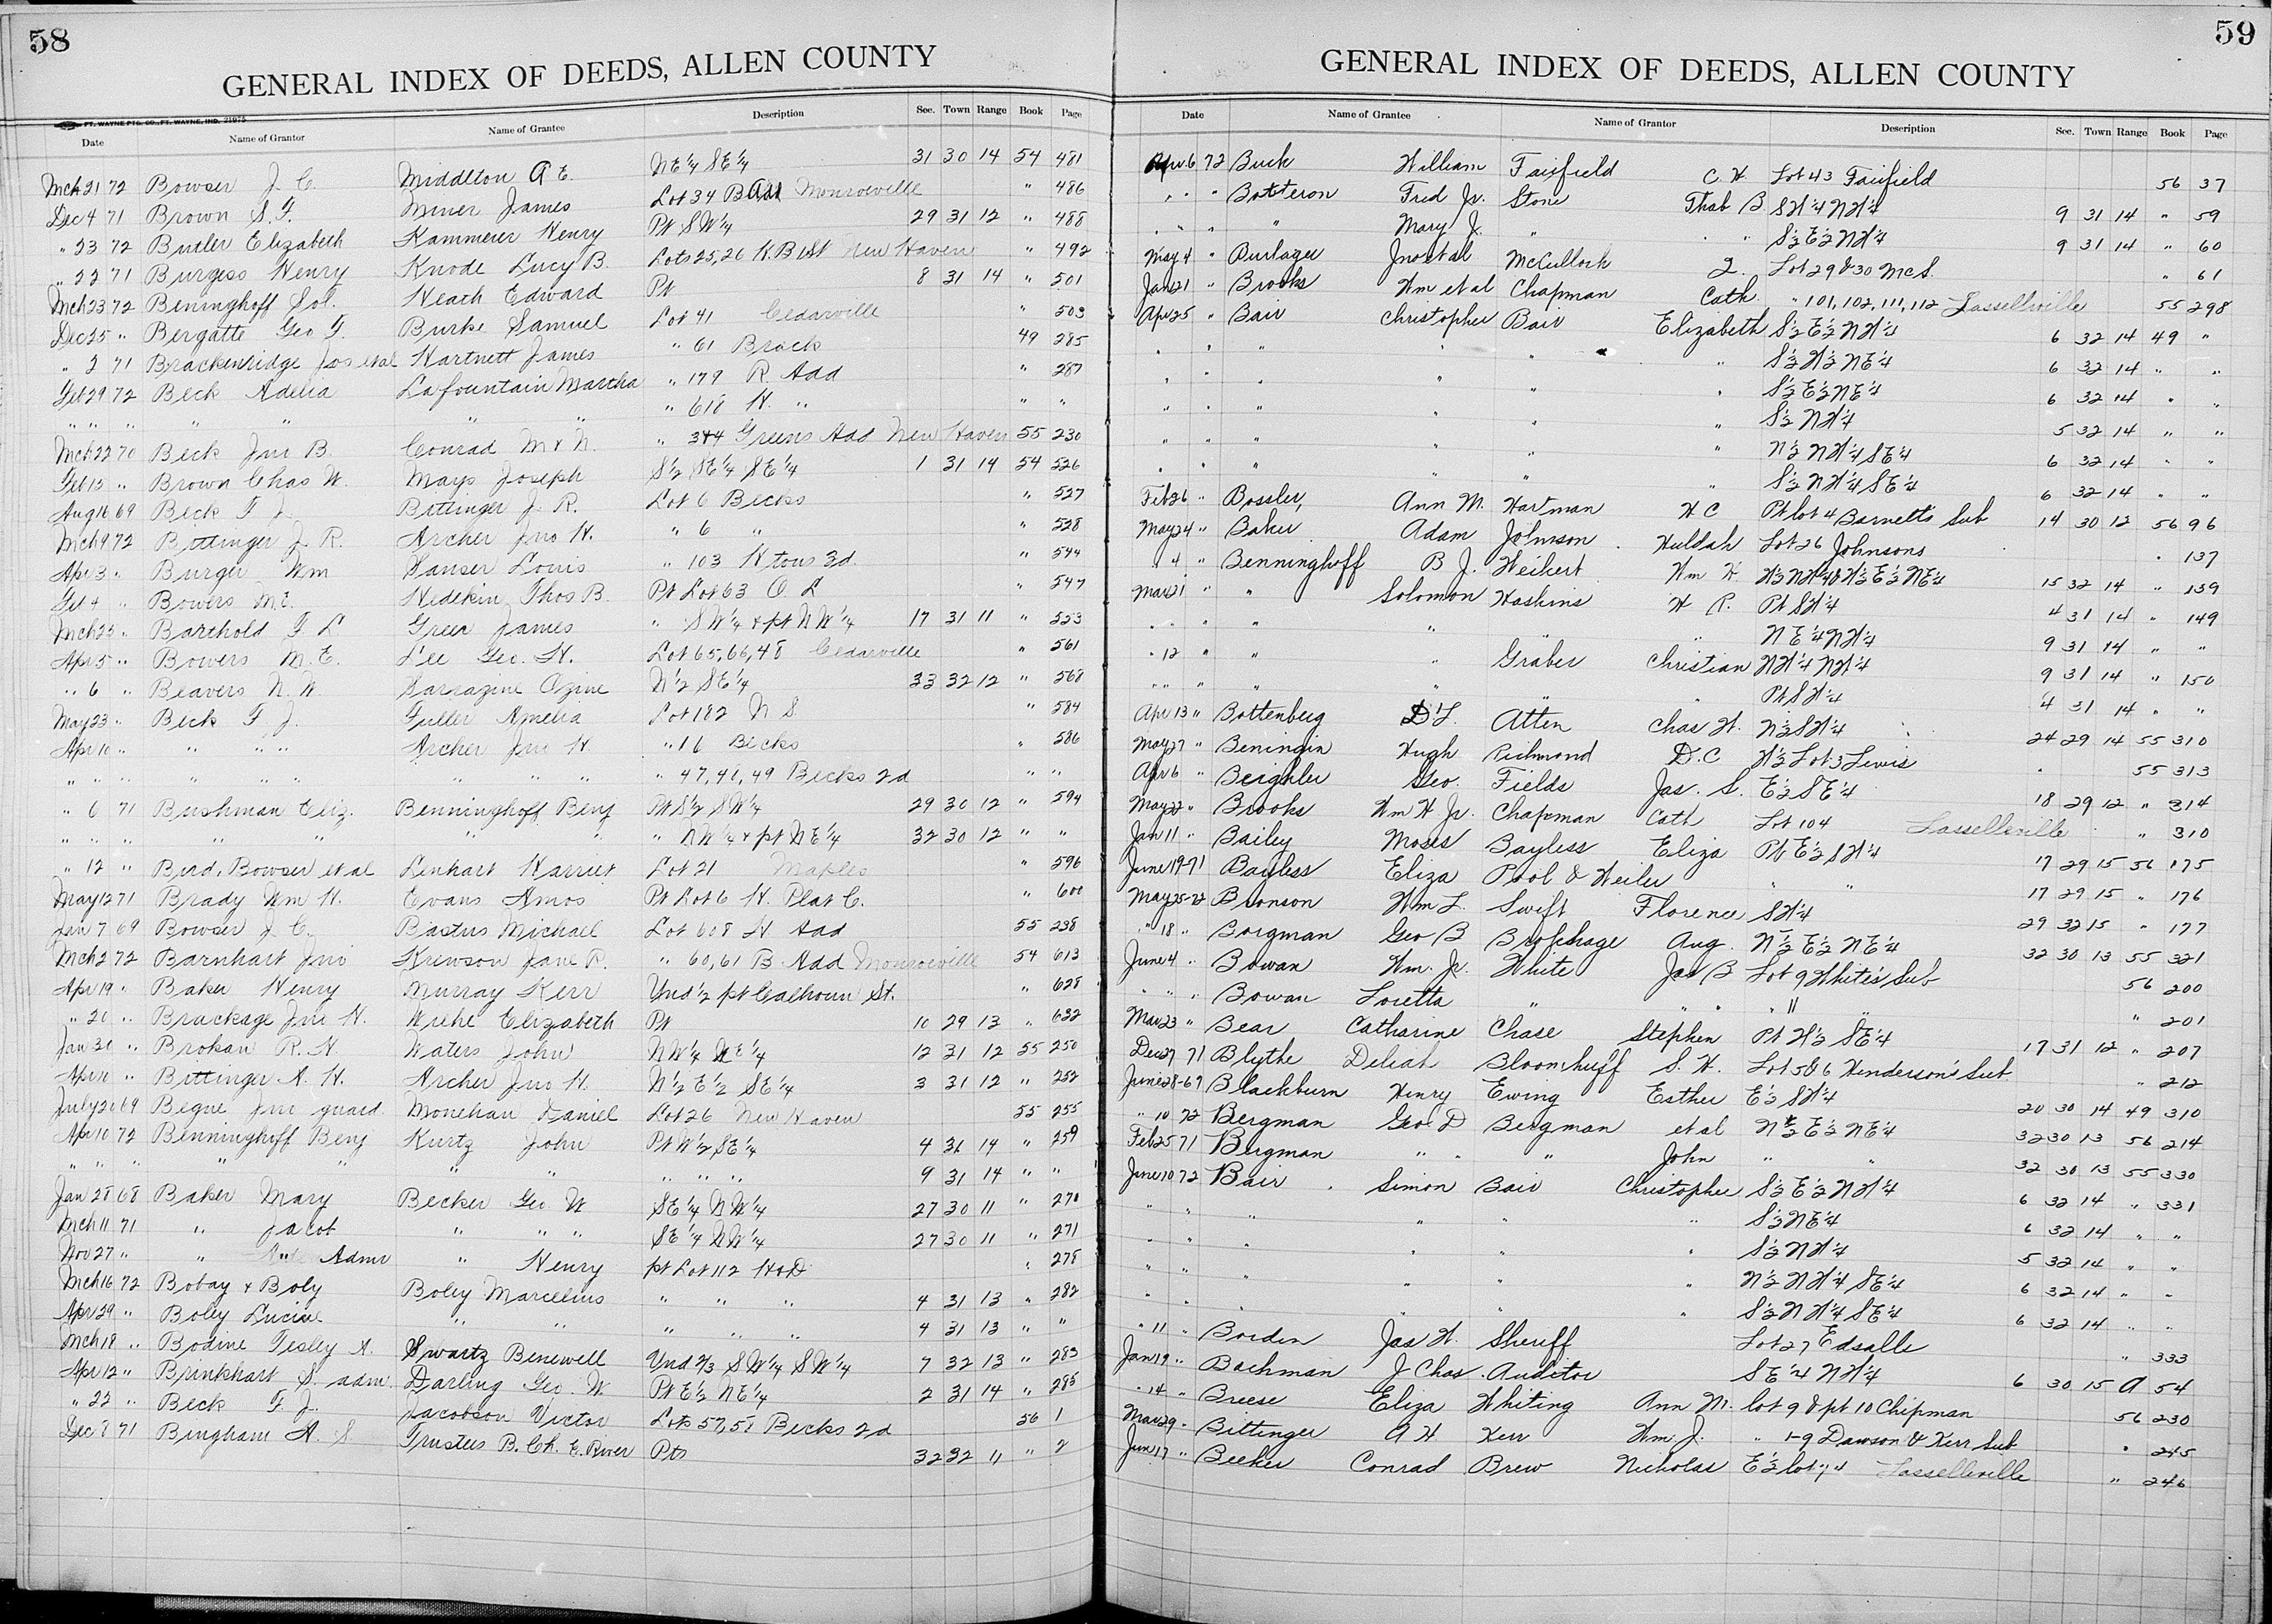 58
GENERAL INDEX OF DEEDS, ALLEN COUNTY
FT. WAYNE PTG. CO., FT. WAYNE, IND. 21975
Date Name of Grantor Name of Grantee Description Sec. Town Range Book Page
Mch 21 72 Bowser J. C. Middleton A E. N E 1/4 S E 1/4 31 30 14 54 481
Dec 4 71 Brown S. F. Miner James Lot 34 B Add Monroeville " 486
" 23 72 Butler Elizabeth Kammeier Henry Pt S W 1/4 29 31 12 " 488
" 22 71 Burgess Henry Knode Lucy B. Lots 25, 26 New Haven " 492
Mch 23 72 Beninghoff Sol. Heath Edward Pt 8 31 14 " 501
Dec 25 " Bergatte Geo F. Burke Samuel Lot 41 Cedarville " 503
" 2 71 Brackenridge Jos et al Hartnett James " 61 Brack 49 285
Feb 29 72 Beck Adelia Lafountain Martha " 179 R Add " 287
" " " " " " " " 618 H. " " "
Mch 22 70 Beck Jno B. Conrad M & N. " 344 Greens Add New Haven 55 230
Feb 13 " Brown Chas W. Mays Joseph S 1/2 S E 1/4 S E 1/4 1 31 14 54 526
Aug 16 69 Beck F J. Bittinger J. R. Lot 6 Becks " 527
Mch 9 72 Bittinger J. R. Archer Jno H. " 6 " " 528
Apr 3 " Burger Wm Hanser Louis " 103 H tons 3d. " 544
Feb 4 " Bowers M. E. Hedekin Thos B. Pt Lot 63 O L " 547
Mch 25 " Barthold F L Greer James " S W 1/4 & pt N W 1/4 17 31 11 " 553
Apr 5 " Bowers M. E. Lee Geo. H. Lot 65, 66, 48 Cedarville " 561
" 6 " Beavers N. W Sarrazine Ozine N 1/2 S E 1/4 33 32 12 " 568
May 23 " Beck F J. Fuller Amelia Lot 182 N S " 584
Apr 10 " " " " Archer Jno H. " 16 Becks " 586
" " " " " " " " " " 47, 48, 49 Becks 2d " "
" 6 71 Bushman Eliz. Benninghoff Benj Pt S 1/2 S W 1/4 29 30 12 " 594
" " " " " " " " N W 1/4 & pt N E 1/4 32 30 12 " "
" 12 " Bird, Bowser et al Linhart Harriet Lot 21 Maples " 596
May 12 71 Brady Wm H. Evans Amos Pt Lot 6 H. Plat C. " 600
Jan 7 69 Bowser J. C. Bastus Michael Lot 608 H Add 55 238
Mch 2 72 Barnhart Jno Krewson Jane R. " 60, 61 B Add Monroeville 54 613
Apr 19 " Baker Henry Murray Kerr Und 1/2 pt Calhoun St. " 628
" 20 " Brackage Jno H. Wrehe Elizabeth Pt 10 29 13 " 632
Jan 30 " Brokaw R. H. Waters John N W 1/4 N E 1/4 12 31 12 55 250
Apr 10 " Bittinger A. H. Archer Jno H. N 1/2 E 1/2 S E 1/4 3 31 12 " 252
July 20 69 Begue Jno guard Monehan Daniel Lot 26 New Haven 55 255
Apr 10 72 Benninghoff Benj Kurtz John Pt W 1/2 S E 1/4 4 31 14 " 259
" " " " " " " " " " 9 31 14 " "
Jan 28 68 Baker Mary Becker Geo W S E 1/4 N W 1/4 27 30 11 " 270
Mch 11 71 " Jacob " " " S E 1/4 N W 1/4 27 30 11 " 271
Nov 27 " " Admr " Henry pt Lot 112 H & D " 278
Mch 16 72 Bobay & Boly Boley Marcelius " " " 4 31 13 " 282
Apr 29 " Boley Lucine " " " " " 4 31 13 " "
Mch 18 " Bodine Tesley A. Swartz Benewell Und 2/3 S W 1/4 S W 1/4 7 32 13 " 283
Apr 12 " Brinkhart S. adm. Darling Geo. W Pt E 1/2 N E 1/4 2 31 14 " 285
" 22 " Beck F. J. Jacobson Victor Lots 57, 58 Becks 2d 56 1
Dec 8 71 Bingham A. S Trustees B. Ch. E. River Pts 32 32 11 " 2
59
GENERAL INDEX OF DEEDS, ALLEN COUNTY
Date Name of Grantee Name of Grantor Description Sec. Town Range Book Page
Apr 6 72 Buck William Fairfield C. W Lot 43 Fairfield 56 37
" " " Botteron Fred Jr. Stone Thab B S W 1/4 N W 1/4 9 31 14 " 59
" " " " Mary J. " " " S 1/2 E 1/2 N W 1/4 9 31 14 " 60
May 4 " Burlager Jno et al McCulloch Lot 29 & 30 McS. " 61
Jan 21 " Brooks Wm et al Chapman Cath " 101, 102, 111, 112 Lassellville 55 298
Apr 25 " Bair Christopher Bair Elizabeth S 1/2 E 1/2 N W 1/4 6 32 14 49 "
" " " " " " S 1/2 W 1/2 N E 1/4 6 32 14 " "
" " " " " " S 1/2 E 1/2 N E 1/4 6 32 14 " "
" " " " " " S 1/2 N W 1/4 5 32 14 " "
" " " " " " N 1/2 N W 1/4 S E 1/4 6 32 14 " "
" " " " " " S 1/2 N W 1/4 S E 1/4 6 32 14 " "
Feb 26 " Bossler, Ann M. Hartman H C Pt lot 4 Barnetts Sub 14 30 12 56 96
May 24 " Baker Adam Johnson Huldah Lot 26 Johnsons " 137
" 4 " Benninghoff B J. Weikert Wm H W 1/2 N W 1/4 & W 1/2 E 1/2 N E 1/4 15 32 14 " 139
Mar 21 " " Solomon Hoskins H R. Pt S W 1/4 4 31 14 " 149
" " " " " " " N E 1/4 N W 1/4 9 31 14 " "
" 12 " " " Graber Christian N W 1/4 N W 1/4 9 31 14 " 150
" " " " " " " Pt S W 1/4 4 31 14 " "
Apr 13 " Bottenberg D L. Atten Chas H. N 1/2 S W 1/4 24 29 14 55 310
May 27 " Beningin Hugh Richmond D. C W 1/2 Lot 3 Lewis 55 313
Apr 6 " Beighler Geo. Fields Jas. S. E 1/2 S E 1/4 18 29 12 " 314
May 22 " Brooks Wm H Jr. Chapman Cath Lot 104 Lasselleville " 310
Jan 11 " Bailey Moses Bayless Eliza Pt E 1/2 S W 1/4 17 29 15 56 175
June 19-71 Bayless Eliza Pool & Weiler " " 17 29 15 " 176
May 25-72 Bronson Wm L. Swift Florence S W 1/4 29 32 15 " 177
" 18 " Borgman Geo B Brokhage Aug. N 1/2 E 1/2 N E 1/4 32 30 13 55 321
June 4 " Bowan Wm. Jr. White Jas B Lot 9 White's Sub 56 200
" " " Bowan Loretta " " " " 11 " " 201
Mar 23 " Bear Catharine Chase Stephen Pt W 1/2 S E 1/4 17 31 12 " 207
Dec 27 71 Blythe Deliah Bloomhuff S. H. Lot 5 & 6 Henderson's Sub " 212
June 28-69 Blackburn Henry Ewing Esther E 1/2 S W 1/4 20 30 14 49 310
" 10 72 Bergman Geo D Bergman et al N 1/2 E 1/2 N E 1/4 32 30 13 56 214
Feb 25 71 Bergman " " " John " " 32 30 13 55 330
June 10 72 Bair Simon Bair Christopher S 1/2 E 1/2 N W 1/4 6 32 14 " 331
" " " " " " S 1/2 N E 1/4 6 32 14 " "
" " " " " " S 1/2 N W 1/4 5 32 14 " "
" " " " " " N 1/2 N W 1/4 S E 1/4 6 32 14 " "
" " " " " " S 1/2 N W 1/4 S E 1/4 6 32 14 " "
" 11 " Borden Jas W. Sheriff Lot 27 Edsalls " 333
Jan 19 " Bachman J Chas. Auditor S E 1/4 N W 1/4 6 30 15 A 54
" 14 " Breese Eliza Whiting Ann M. lot 9 & pt 10 Chipman 56 230
Mar 29 " Bittinger A H Kerr Wm. J. " 1-9 Dawson & Kerr Sub " 245
Jun 17 " Beeker Conrad Brew Nicholas E 1/2 lot 74 Lasselleville " 246